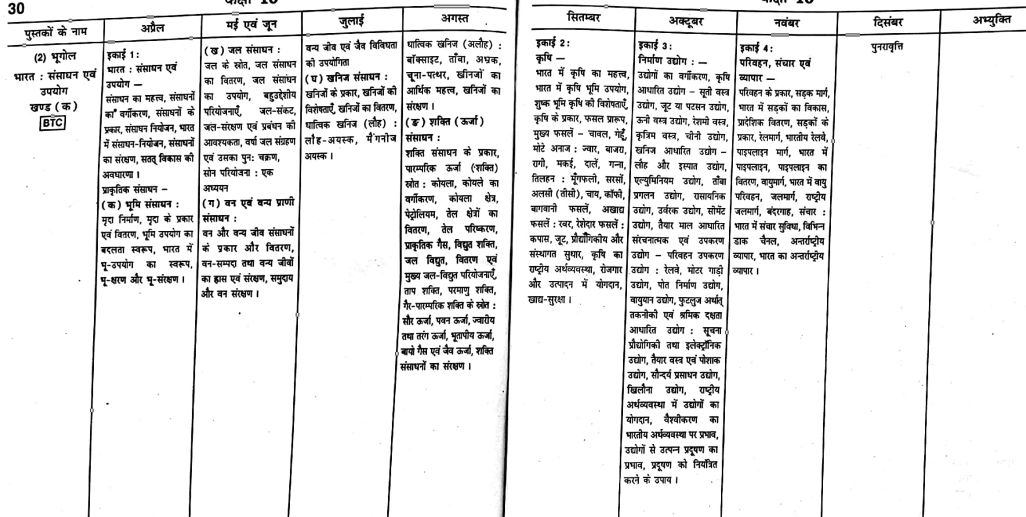 30
कक्षा 10
कक्षा 10
पुस्तकों के नाम
अप्रैल
मई एवं जून
जुलाई
अगस्त
सितम्बर
अक्टूबर
नवंबर
दिसंबर
अभ्युक्ति
(2) भूगोल
भारत : संसाधन एवं
उपयोग
खण्ड (क)
BTC
इकाई 1:
भारत : संसाधन एवं
उपयोग —
संसाधन का महत्त्व, संसाधनों
का वर्गीकरण, संसाधनों के
प्रकार, संसाधन नियोजन, भारत
में संसाधन-नियोजन, संसाधनों
का संरक्षण, सतत् विकास की
अवधारणा ।
प्राकृतिक संसाधन –
(क) भूमि संसाधन :
मृदा निर्माण, मृदा के प्रकार
एवं वितरण, भूमि उपयोग का
बदलता स्वरूप, भारत में
भू-उपयोग का स्वरूप,
भू-क्षरण और भू-संरक्षण ।
(ख) जल संसाधन :
जल के स्रोत, जल संसाधन
का वितरण, जल संसाधन
का उपयोग, बहुउद्देशीय
परियोजनाएँ, जल-संकट,
जल-संरक्षण एवं प्रबंधन की
आवश्यकता, वर्षा जल संग्रहण
एवं उसका पुन: चक्रण,
सोन परियोजना : एक
अध्ययन
(ग) वन एवं वन्य प्राणी
संसाधन :
वन और वन्य जीव संसाधनों
के प्रकार और वितरण,
वन-सम्पदा तथा वन्य जीवों
का ह्रास एवं संरक्षण, समुदाय
और वन संरक्षण ।
वन्य जीव एवं जैव विविधता
की उपयोगिता
(घ) खनिज संसाधन :
खनिजों के प्रकार, खनिजों की
विशेषताएँ, खनिजों का वितरण,
धात्विक खनिज (लौह) :
लौह-अयस्क, मैंगनीज
अयस्क ।
धात्विक खनिज (अलौह) :
बॉक्साइट, ताँबा, अभ्रक,
चूना-पत्थर, खनिजों का
आर्थिक महत्त्व, खनिजों का
संरक्षण ।
(ङ) शक्ति (ऊर्जा)
संसाधन :
शक्ति संसाधन के प्रकार,
पारम्परिक ऊर्जा (शक्ति)
स्रोत : कोयला, कोयले का
वर्गीकरण, कोयला क्षेत्र,
पेट्रोलियम, तेल क्षेत्रों का
वितरण, तेल परिष्करण,
प्राकृतिक गैस, विद्युत शक्ति,
जल विद्युत, वितरण एवं
मुख्य जल-विद्युत परियोजनाएँ,
ताप शक्ति, परमाणु शक्ति,
गैर-पारम्परिक शक्ति के स्रोत :
सौर ऊर्जा, पवन ऊर्जा, ज्वारीय
तथा तरंग ऊर्जा, भूतापीय ऊर्जा,
बायो गैस एवं जैव ऊर्जा, शक्ति
संसाधनों का संरक्षण ।
इकाई 2:
कृषि —
भारत में कृषि का महत्त्व,
भारत में कृषि भूमि उपयोग,
शुष्क भूमि कृषि की विशेषताएँ,
कृषि के प्रकार, फसल प्रारूप,
मुख्य फसलें – चावल, गेहूँ,
मोटे अनाज : ज्वार, बाजरा,
रागी, मकई, दालें, गन्ना,
तिलहन : मूँगफली, सरसों,
अलसी (तीसी), चाय, कॉफी,
बागवानी फसलें, अखाद्य
फसलें : रबर, रेशेदार फसलें :
कपास, जूट, प्रौद्योगिकीय और
संस्थागत सुधार, कृषि का
राष्ट्रीय अर्थव्यवस्था, रोजगार
और उत्पादन में योगदान,
खाद्य-सुरक्षा ।
इकाई 3:
निर्माण उद्योग : —
उद्योगों का वर्गीकरण, कृषि
आधारित उद्योग – सूती वस्त्र
उद्योग, जूट या पटसन उद्योग,
ऊनी वस्त्र उद्योग, रेशमी वस्त्र,
कृत्रिम वस्त्र, चीनी उद्योग,
खनिज आधारित उद्योग –
लौह और इस्पात उद्योग,
एल्युमिनियम उद्योग, ताँबा
प्रगलन उद्योग, रासायनिक
उद्योग, उर्वरक उद्योग, सीमेंट
उद्योग, तैयार माल आधारित
संरचनात्मक एवं उपकरण
उद्योग – परिवहन उपकरण
उद्योग : रेलवे, मोटर गाड़ी
उद्योग, पोत निर्माण उद्योग,
वायुयान उद्योग, फुटलुज अर्थात्
तकनीकी एवं श्रमिक दक्षता
आधारित उद्योग : सूचना
प्रौद्योगिकी तथा इलेक्ट्रॉनिक
उद्योग, तैयार वस्त्र एवं पोशाक
उद्योग, सौन्दर्य प्रसाधन उद्योग,
खिलौना उद्योग, राष्ट्रीय
अर्थव्यवस्था में उद्योगों का
योगदान, वैश्वीकरण का
भारतीय अर्थव्यवस्था पर प्रभाव,
उद्योगों से उत्पन्न प्रदूषण का
प्रभाव, प्रदूषण को नियंत्रित
करने के उपाय ।
इकाई 4:
परिवहन, संचार एवं
व्यापार —
परिवहन के प्रकार, सड़क मार्ग,
भारत में सड़कों का विकास,
प्रादेशिक वितरण, सड़कों के
प्रकार, रेलमार्ग, भारतीय रेलवे,
पाइपलाइन मार्ग, भारत में
पाइपलाइन, पाइपलाइन का
वितरण, वायुमार्ग, भारत में वायु
परिवहन, जलमार्ग, राष्ट्रीय
जलमार्ग, बंदरगाह, संचार :
भारत में संचार सुविधा, विभिन्न
डाक चैनल, अन्तर्राष्ट्रीय
व्यापार, भारत का अन्तर्राष्ट्रीय
व्यापार ।
पुनरावृत्ति